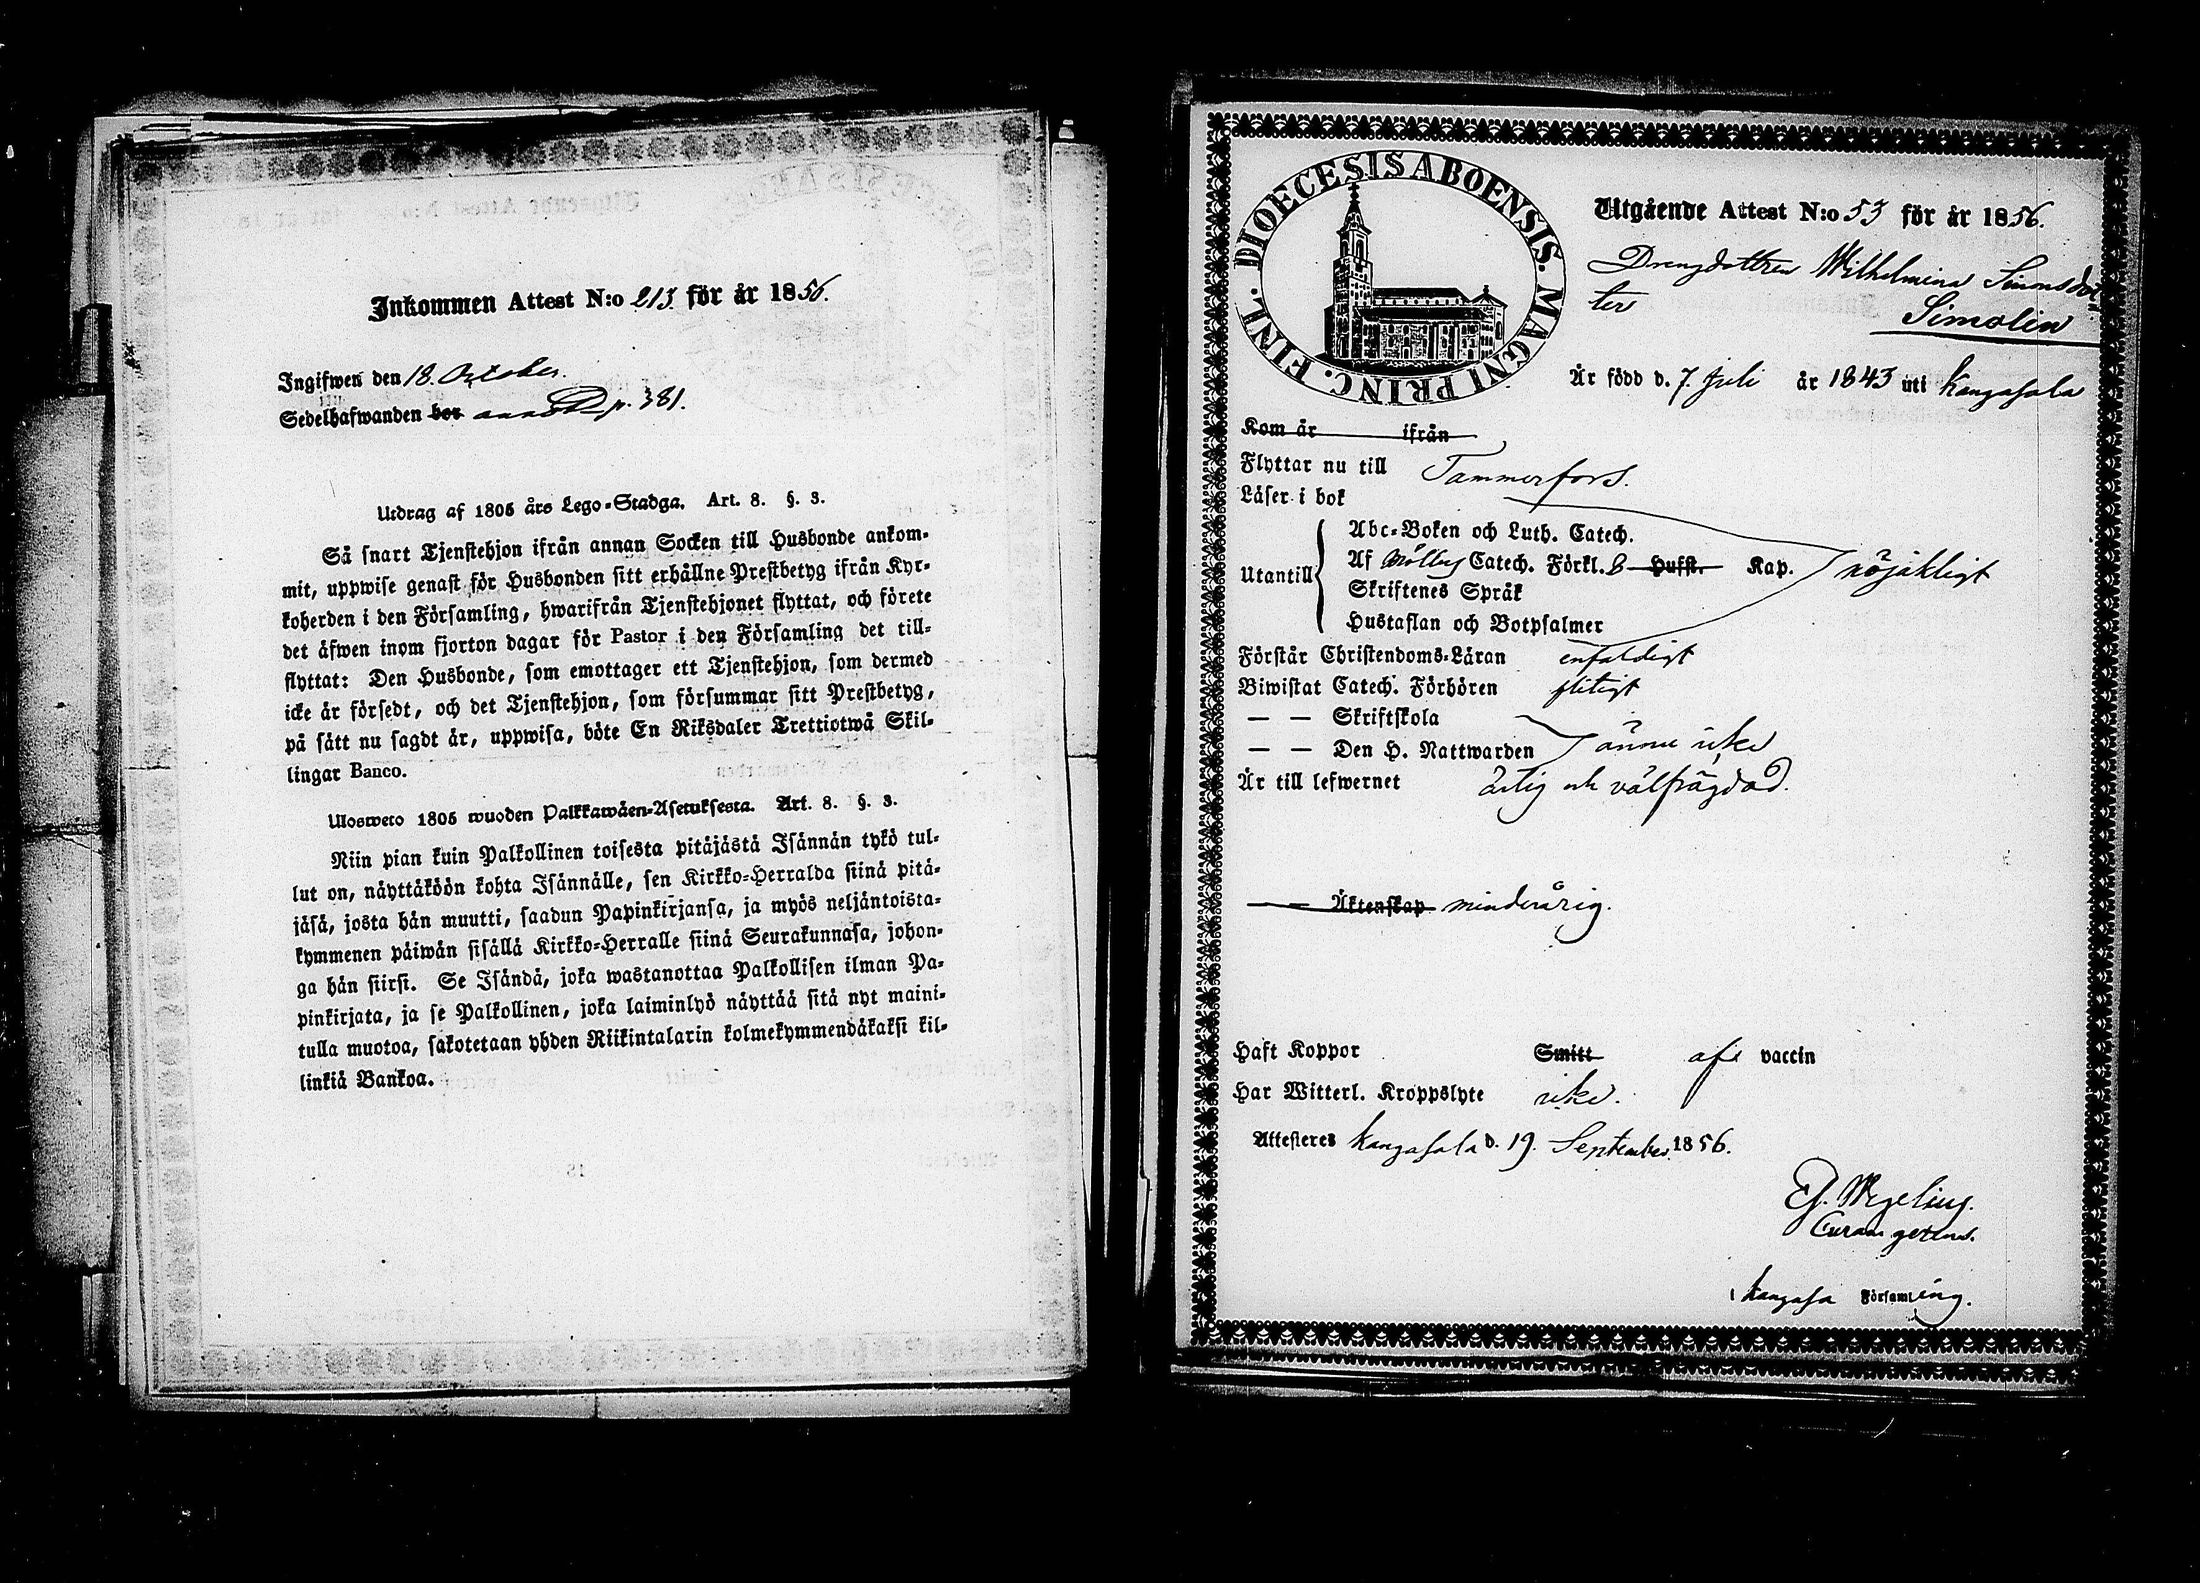 Inkommen Attest N:o 213. för år 1856.
Ingifwen den 18. October.
Sedelhafwanden bor p. 381.
Utdrag af 1805 års Lego-Stadga. Art. 8. §. 3.
Så snart Tjenstehjon ifrån annan Socken till Husbonde ankom-
mit, uppwise genast för Husbonden sitt erhållne Prestbetyg ifrån Kyr-
koherden i den Församling, hwarifrån Tjenstehjonet flyttat, och förete
det äfwen inom fjorton dagar för Pastor i den Församling det till-
flyttat: Den Husbonde, som emottager ett Tjenstehjon, som dermed
icke är försedt, och det Tjenstehjon, som försummar sitt Prestbetyg,
på sätt nu sagdt är, uppwisa, böte En Riksdaler Trettiotwå Skil-
lingar Banco.
Uloswето 1805 wuoden Palkkawäen-Asetuksesta. Art. 8. §. 3.
Niin pian kuin Palkollinen toisesta pitäjästä Isännän tykö tul-
lut on, näyttäköön kohta Isännälle, sen Kirkko-Herralda siinä pitä-
jäsä, josta hän muutti, saadun Papinkirjansa, ja myös neljäntoista-
kymmenen päiwän sisällä Kirkko-Herralle siinä Seurakunnasa, johon-
ga hän siirsi. Se Isändä, joka wastanottaa Palkollisen ilman Pa-
pinkirjata, ja se Palkollinen, joka laiminlyö näyttää sitä nyt maini-
tulla muotoa, sakotetaan yhden Riikintalarin kolmekymmendäkaksi kil-
linkiä Bankoa.
DIOECESIS ABOENSIS. MAGNI PRINC. FINL.
Utgående Attest N:o 53 för år 1856.
Drengdottren Wilhelmina Simonsdot
ter Simolin
Är född d. 7. Juli år 1843 uti Kangasala
Kom år ifrån
Flyttar nu till Tammerfors.
Läser i bok
Abc-Boken och Luth. Catech.
Utantill Af Möllers Catech. Förkl. 8 Hufst. Kap. nöjaktigt
Skriftenes Språk
Hustaflan och Botpsalmer
Förstår Christendoms-Läran enfaldigt
Biwistat Catech. Förhören flitigt
— — Skriftskola
— — Den H. Nattwarden ännu icke
Är till lefwernet ärlig och välfrägdad.
— — Äktenskap minderårig.
Haft Koppor Smitt afr vaccin
Har Witterl. Kroppslyte icke.
Attesteres Kangasala d. 19. September 1856.
Ej. Wegelius.
Curam gerens.
i Kangasa Församling.